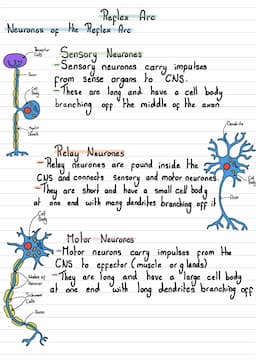 Reflex Arc
Neurones of the Reflex Arc
Sensory Neurones
- Sensory neurones carry impulses
from sense organs to CNS.
- These are long and have a cell body
branching off the middle of the axon
Receptor
Cells
Axon
Cell
Body
Myelin
Sheath
Relay Neurones
- Relay neurones are found inside the
CNS and connects sensory and motor neurones.
- They are short and have a small cell body
at one end with many dendrites branching off it
Dendrite
Cell
Body
Axon
Motor Neurones
- Motor neurons carry impulses from the
CNS to effector (muscle or glands)
- They are long and have a large cell body
at one end with long dendrites branching off
Cell
Body
Nodes of
Ranvier
Schwann
Cells
Axon